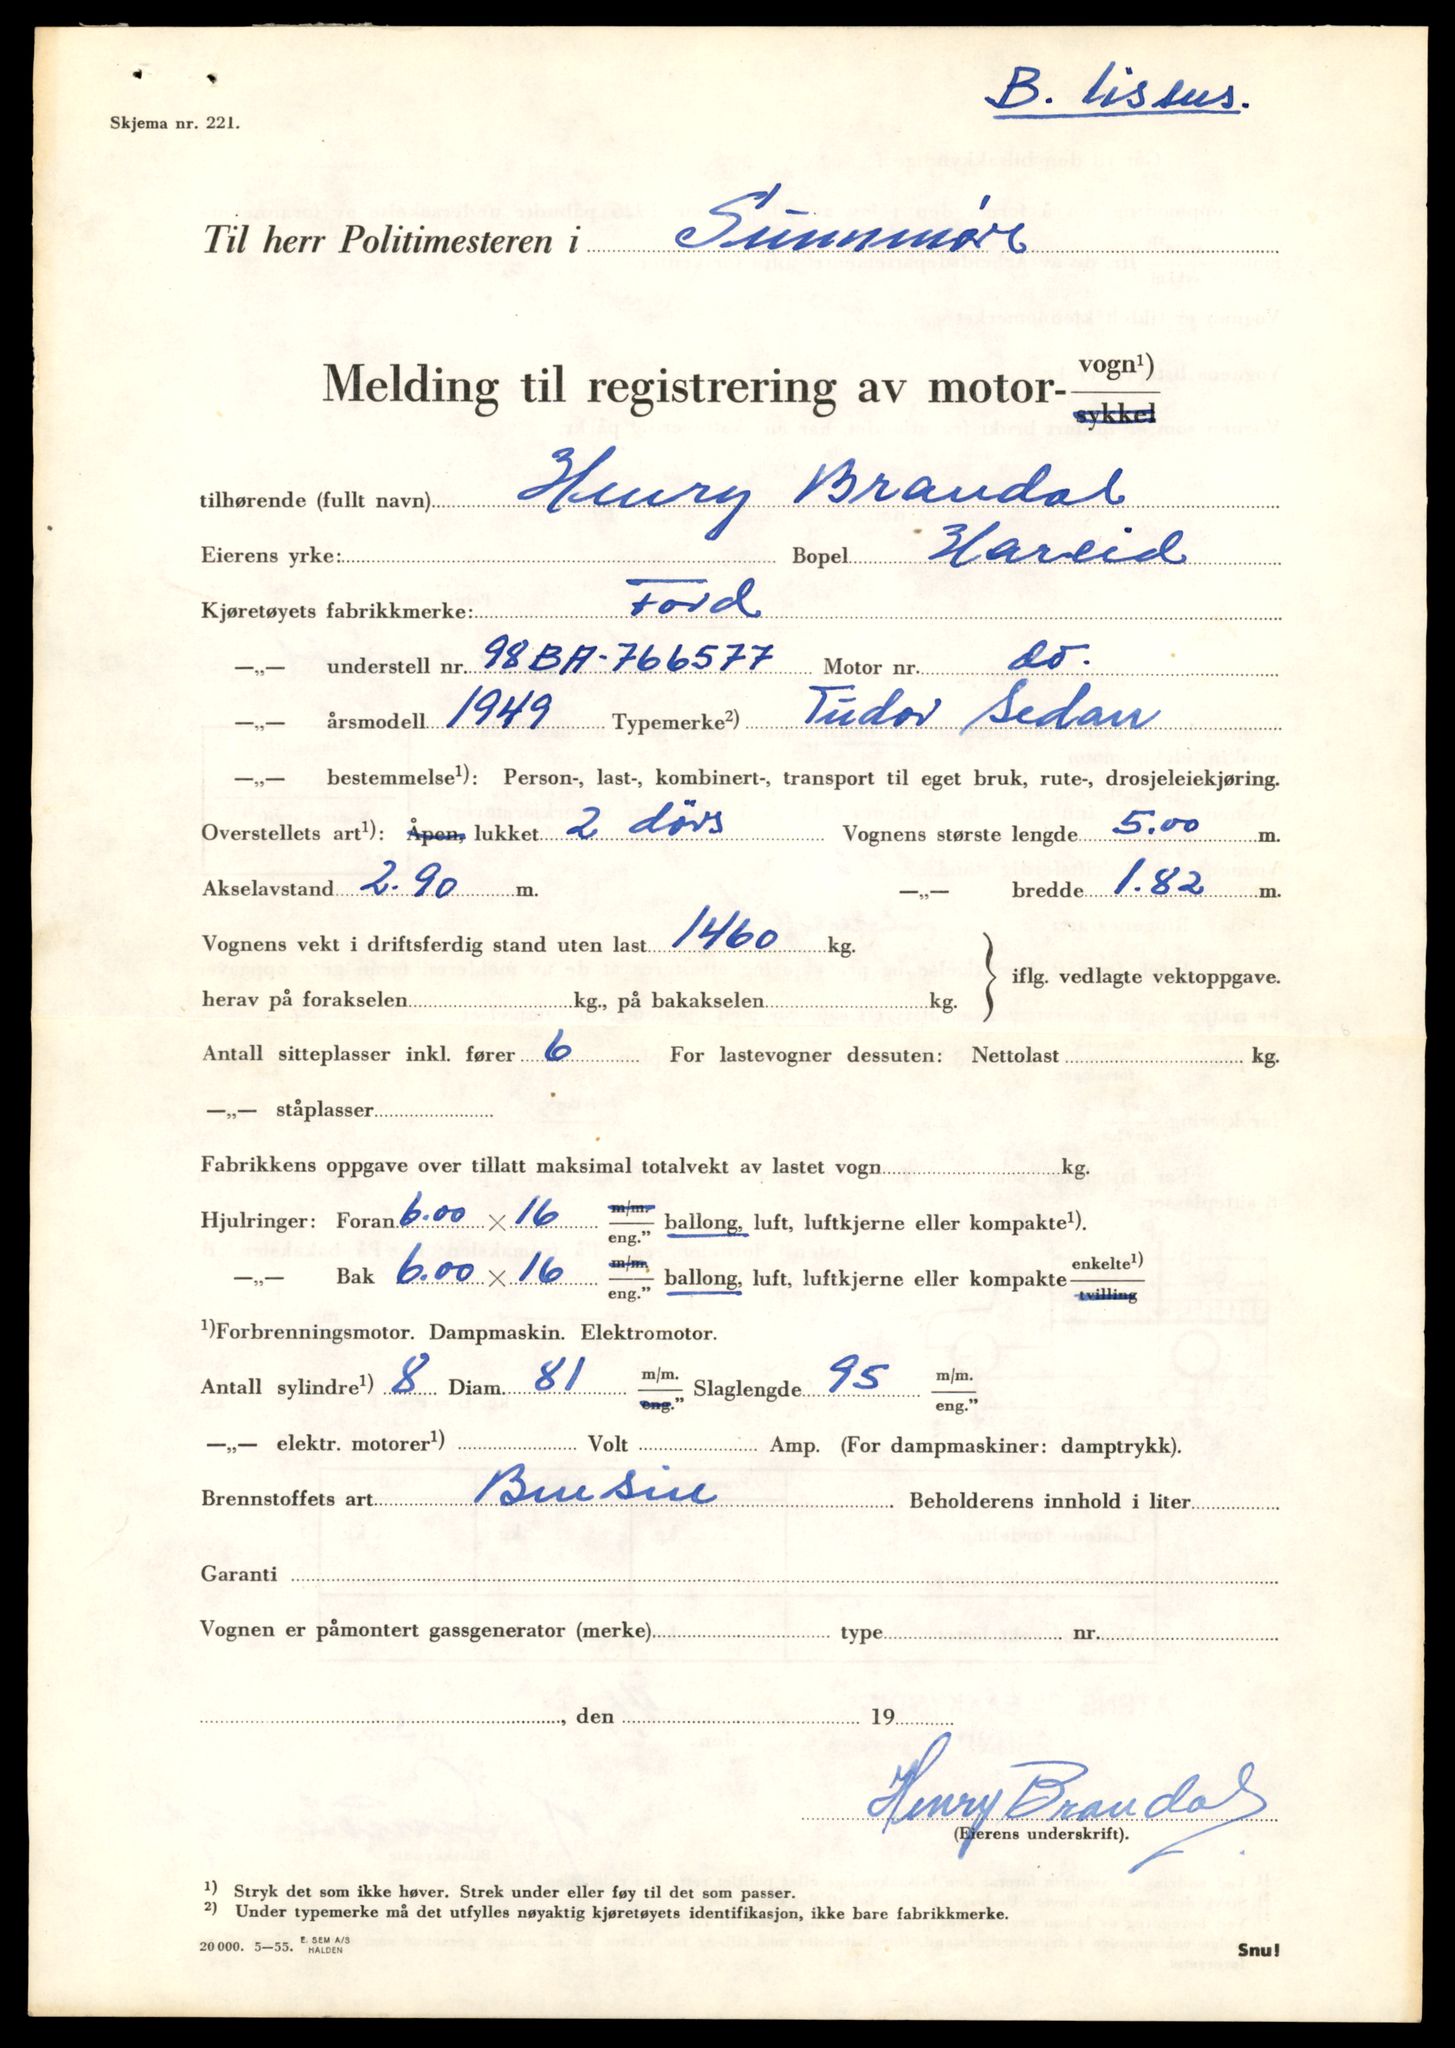 B. lissus.
Skjema nr. 221.
Til herr Politimesteren i Sunnmøre
Melding til registrering av motor- vogn¹)
sykkel
tilhørende (fullt navn) Henry Brandal
Eierens yrke: Bopel Hareid
Kjøretøyets fabrikkmerke: Ford
—„— understell nr. 98BA-766577 Motor nr. do.
—„— årsmodell 1949 Typemerke²) Tudor Sedan
—„— bestemmelse¹): Person-, last-, kombinert-, transport til eget bruk, rute-, drosjeleiekjøring.
Overstellets art¹): Åpen, lukket 2 dørs Vognens største lengde 5.00 m.
Akselavstand 2.90 m. —„— bredde 1.82 m.
Vognens vekt i driftsferdig stand uten last 1460 kg.
iflg. vedlagte vektoppgave.
herav på forakselen kg., på bakakselen kg.
Antall sitteplasser inkl. fører 6 For lastevogner dessuten: Nettolast kg.
—„— ståplasser
Fabrikkens oppgave over tillatt maksimal totalvekt av lastet vogn kg.
Hjulringer: Foran 6.00 × 16 m/m. eng.” ballong, luft, luftkjerne eller kompakte¹).
—„— Bak 6.00 × 16 m/m. eng.” ballong, luft, luftkjerne eller kompakte enkelte¹) tvilling
¹)Forbrenningsmotor. Dampmaskin. Elektromotor.
Antall sylindre¹) 8 Diam. 81 m/m. eng.” Slaglengde 95 m/m. eng.”
—„— elektr. motorer¹) Volt Amp. (For dampmaskiner: damptrykk).
Brennstoffets art Bensin Beholderens innhold i liter
Garanti
Vognen er påmontert gassgenerator (merke) type nr.
, den 19
Henry Brandal
(Eierens underskrift).
¹) Stryk det som ikke høver. Strek under eller føy til det som passer.
²) Under typemerke må det utfylles nøyaktig kjøretøyets identifikasjon, ikke bare fabrikkmerke.
20 000. 5—55. E. SEM A/S HALDEN
Snu!